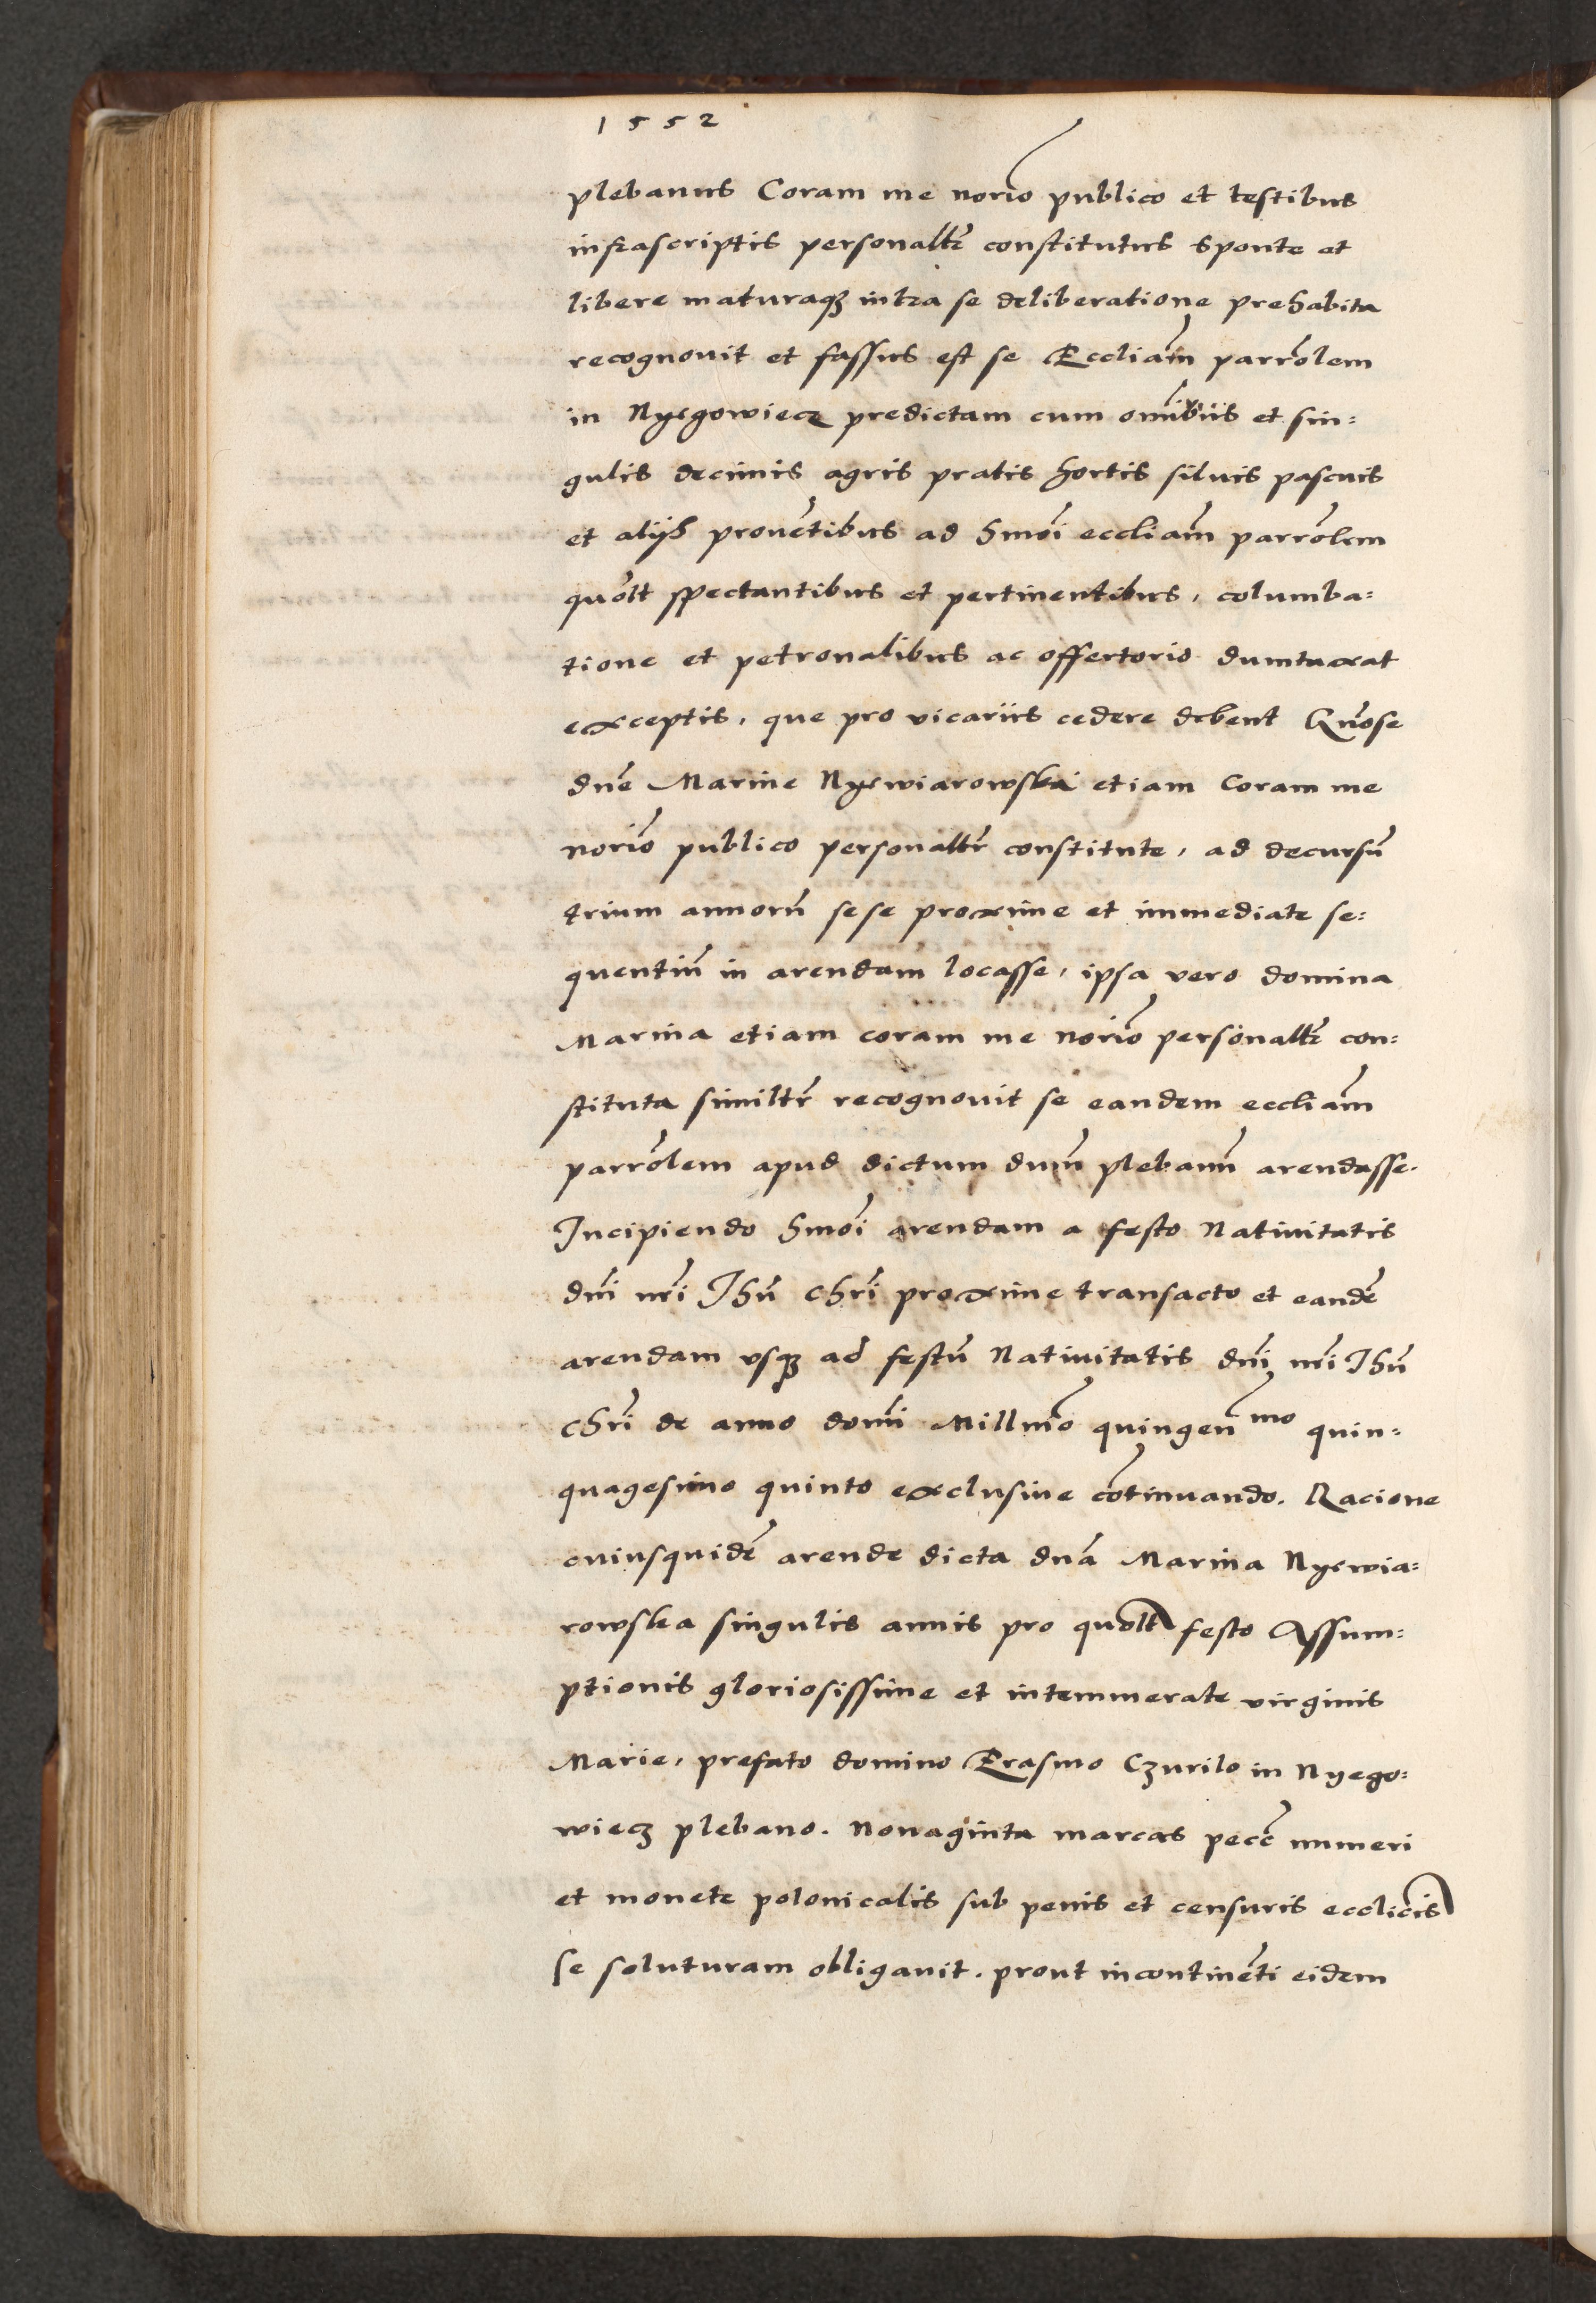 1552
plebanus Coram me norio publico et testibus
infrascriptis personalitr constitutus sponte et
libere maturaqz intra se deliberatione prehabita
recognouit et fassus est se Eccliam parrolem
in Nyegowiecz predictam cum omnibus et sin=
gulis decimis agris pratis hortis siluis pascuis
et alijs prouetibus ad hmoi eccliam parrolem
quolt spectantibus et pertinentibus, columba=
tione et petronalibus ac offertorio dumtaxat
exceptis, que pro vicariis cedere debent Gnose
dne Marine Nyewiarowska etiam Coram me
norio publico personaltr constitute, ad decursu
trium annoru sese proxime et immediate se=
quentiu in arendam locasse, ipsa vero domina
Marina etiam coram me norio personaltr con=
stituta similtr recognouit se eandem eccliam
parrolem apud dictum dnm plebanu arendasse.
Incipiendo hmoi arendam a festo Natiuitatis
dni nri Ihu Chri proxime transacto et eande
arendam vsqz ad festu Natiuitatis dni nri Ihu
Chri de anno domi Millmo quingenmo quin=
quagesimo quinto exclusiue cotinuando. Racione
cuiusquide arende dicta dna Marina Nyewia=
rowska singulis annis pro quolt festo Assum=
ptionis gloriosissime et intemmerate virginis
Marie, prefato domino Erasmo Czurilo in Nyego=
wiecz plebano. Nonaginta marcas pecc numeri
et monete polonicalis sub penis et censuris ecclicis
se soluturam obligauit. prout incontineti eidem